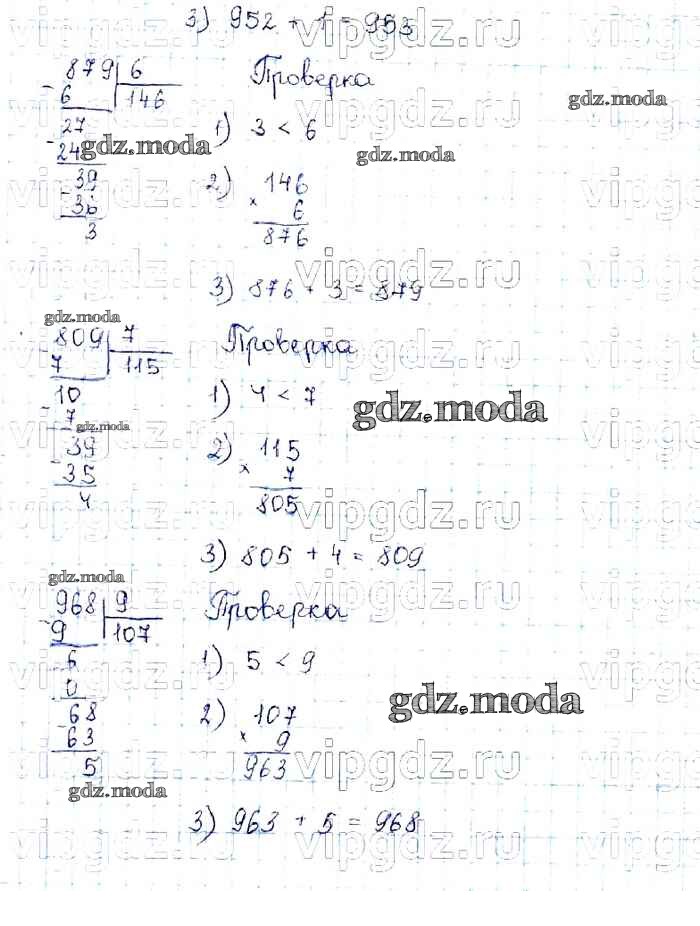 3) 952 + 1 = 953
879 | 6
- 6 | 146
27
- 24
39
- 36
3
Проверка
1) 3 < 6
2) 146
× 6
876
3) 876 + 3 = 879
809 | 7
- 7 | 115
10
- 7
39
- 35
4
Проверка
1) 4 < 7
2) 115
× 7
805
3) 805 + 4 = 809
968 | 9
- 9 | 107
6
- 0
68
- 63
5
Проверка
1) 5 < 9
2) 107
× 9
963
3) 963 + 5 = 968
gdz.moda
gdz.moda
gdz.moda
gdz.moda
gdz.moda
gdz.moda
gdz.moda
gdz.moda
gdz.moda
vipgdz.ru